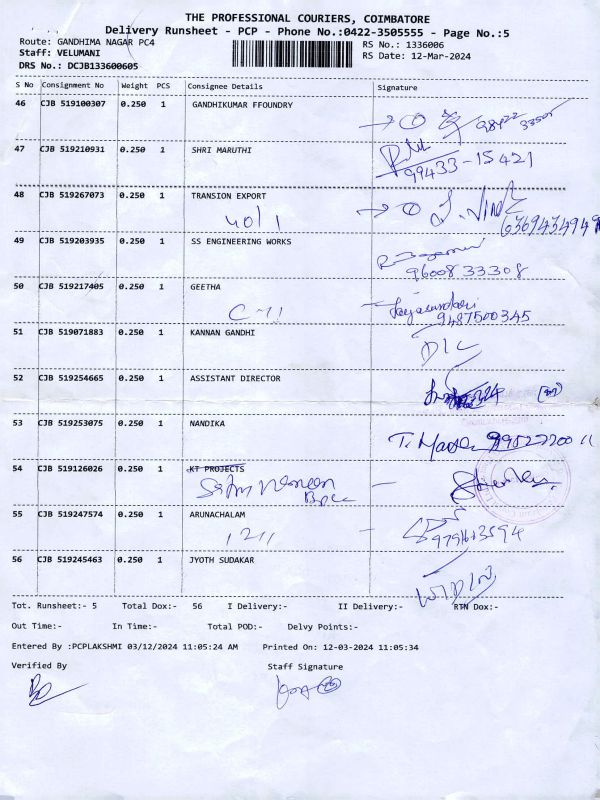 THE PROFESSIONAL COURIERS, COIMBATORE
Delivery Runsheet - PCP - Phone No.:0422-3505555 - Page No.:5
Route: GANDHIMA NAGAR PC4
RS No.: 1336006
Staff: VELUMANI
RS Date: 12-Mar-2024
DRS No.: DCJB133600605
S No Consignment No Weight PCS Consignee Details Signature
46 CJB 519100307 0.250 1 GANDHIKUMAR FFOUNDRY
47 CJB 519210931 0.250 1 SHRI MARUTHI
99433-15421
48 CJB 519267073 0.250 1 TRANSION EXPORT
6369434949
49 CJB 519203935 0.250 1 SS ENGINEERING WORKS
9600833308
50 CJB 519217405 0.250 1 GEETHA
9487500345
51 CJB 519071883 0.250 1 KANNAN GANDHI
D/L
52 CJB 519254665 0.250 1 ASSISTANT DIRECTOR
53 CJB 519253075 0.250 1 NANDIKA
54 CJB 519126026 0.250 1 KT PROJECTS
55 CJB 519247574 0.250 1 ARUNACHALAM
1211
56 CJB 519245463 0.250 1 JYOTH SUDAKAR
Tot. Runsheet:- 5 Total Dox:- 56 I Delivery:- II Delivery:- RTN Dox:-
Out Time:- In Time:- Total POD:- Delvy Points:-
Entered By :PCPLAKSHMI 03/12/2024 11:05:24 AM Printed On: 12-03-2024 11:05:34
Verified By Staff Signature